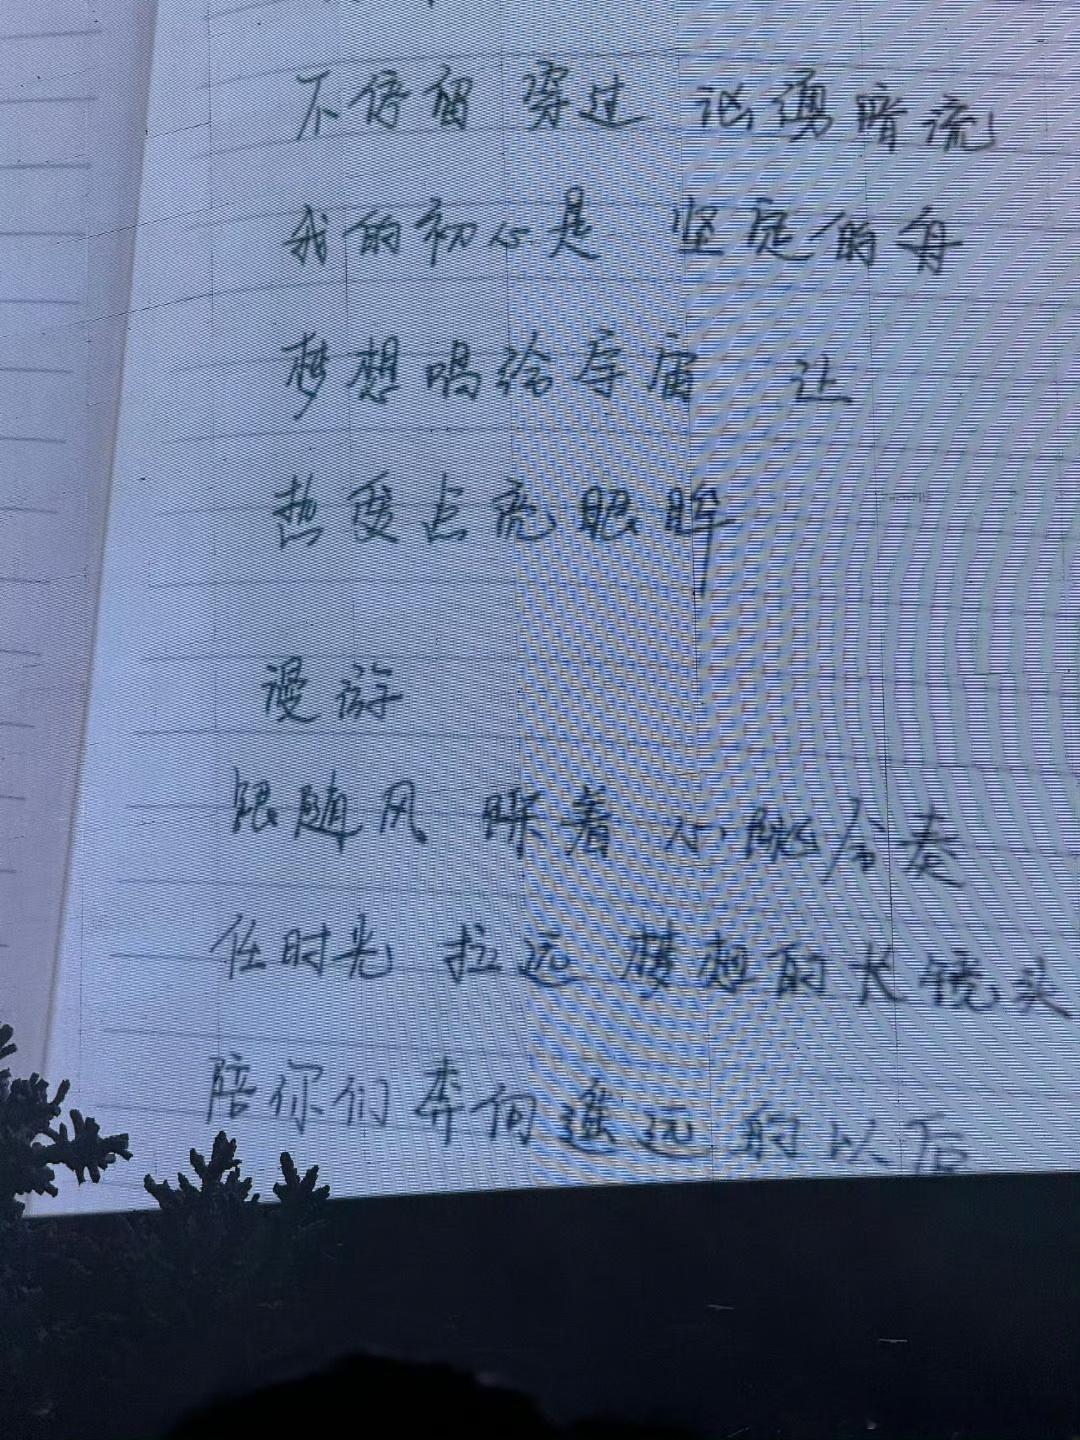 不停留 穿过 汹涌暗流
我的初心是 坚定的舟
梦想唱给宇宙 让
热度点亮眼眸
漫游
跟随风 听着 心跳合奏
任时光 拉远 梦想的长镜头
陪你们 奔向遥远的以后